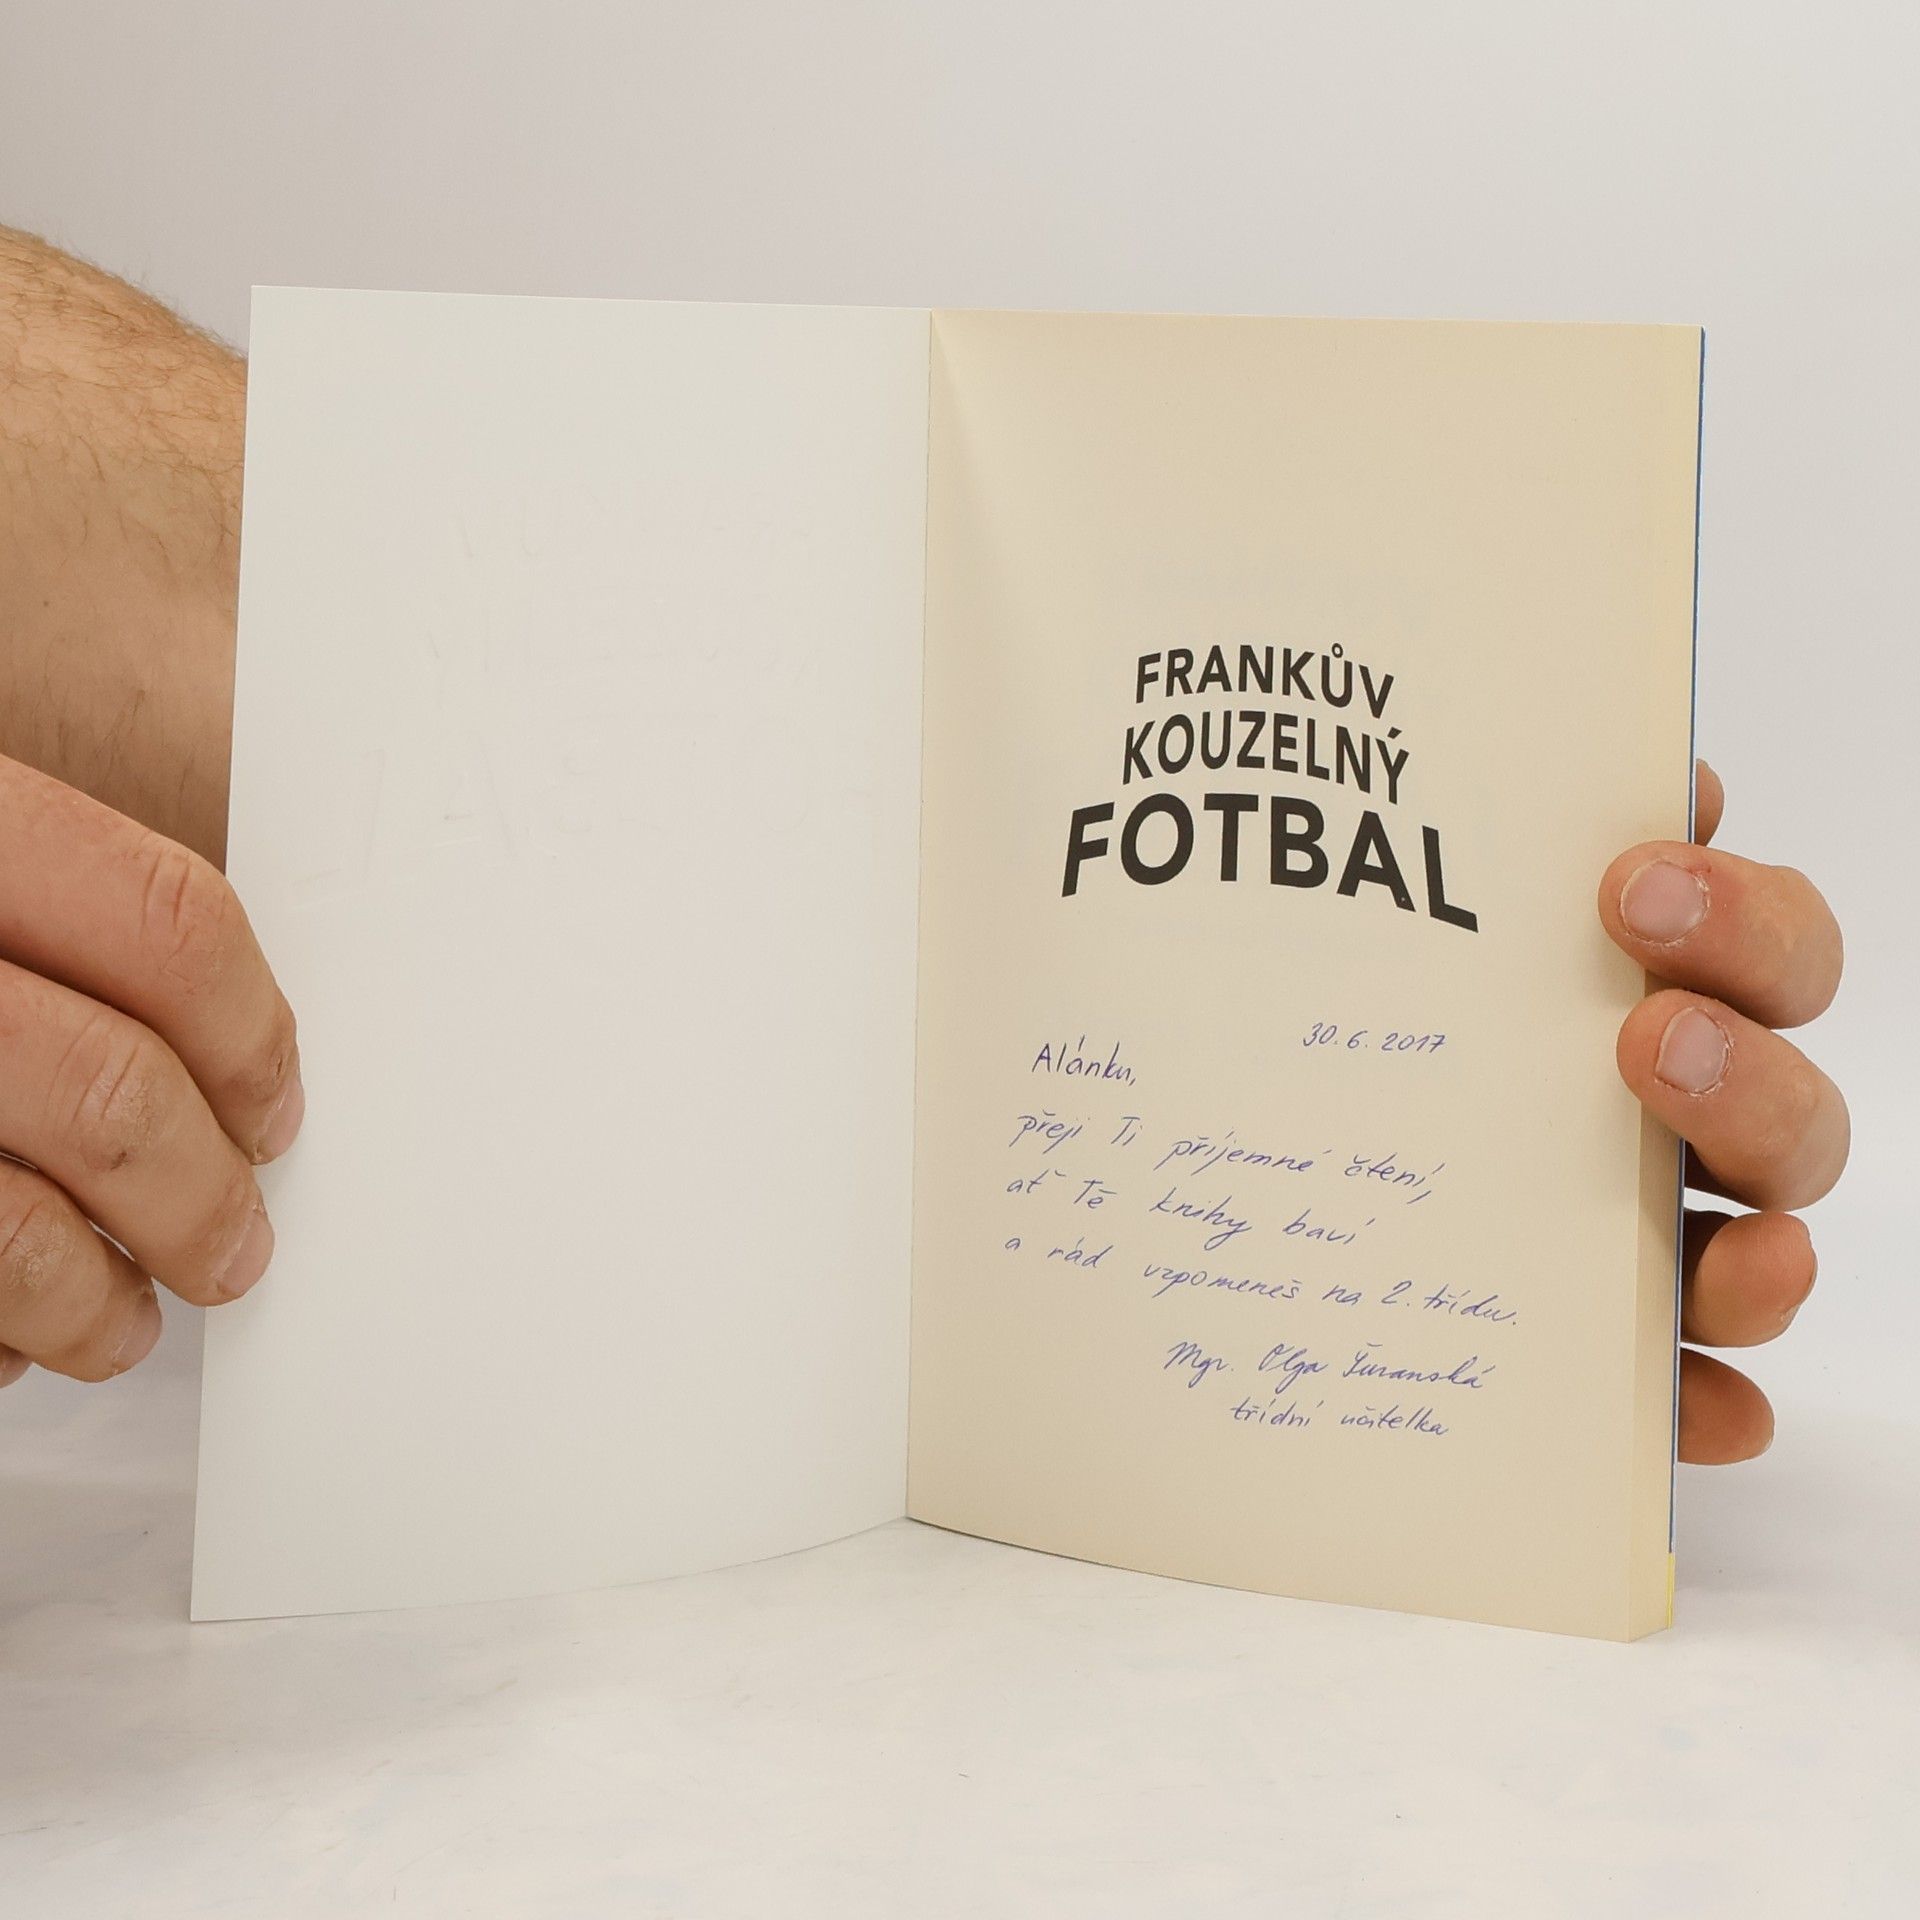 FRANKŮV
KOUZELNÝ
FOTBAL
30. 6. 2017
Alánku,
přeji Ti příjemné čtení,
ať Tě knihy baví
a rád vzpomeneš na 2. třídu.
Mgr. Olga Ďuranská
třídní učitelka